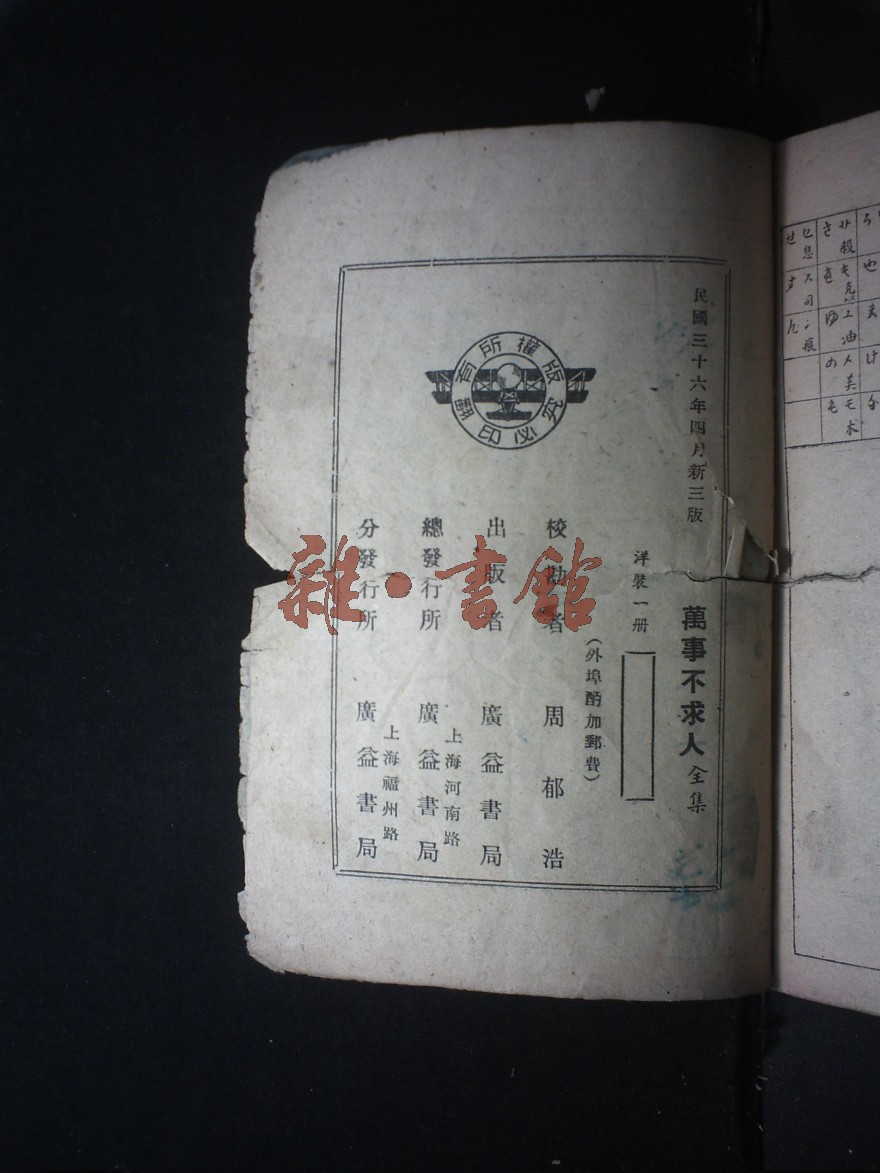 民國三十六年四月新三版
萬事不求人 全集
洋裝一册
(外埠酌加郵費)
校勘者 周郁浩
出版者 廣益書局
上海河南路
總發行所 廣益書局
上海福州路
分發行所 廣益書局
版權所有
翻印必究
雜·書館